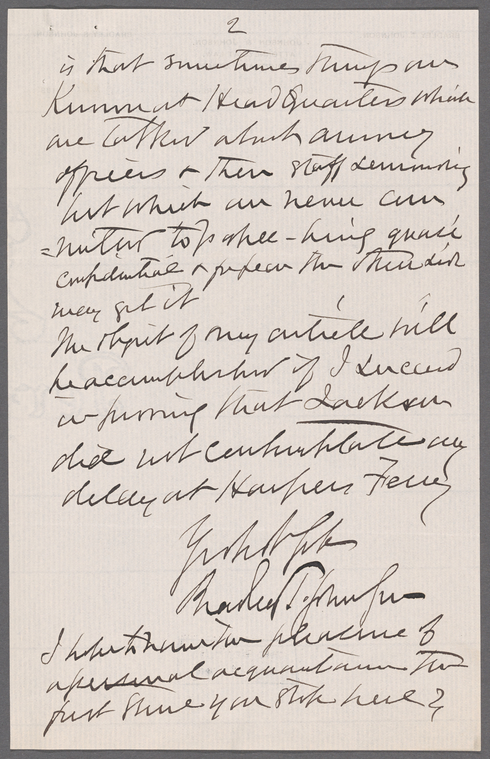 2
is that sometimes things are
Known at Head Quarters which
are talked about among
officers & their staff
but which are never com
=mitted to paper - being quasi
confidential & for fear the other side
may get it
The object of my article will
be accomplished if I succeed
in proving that Jackson
did not contemplate any
delay at Harpers Ferry
Bradley T. Johnson
I hope to have the pleasure of
a personal acquaintance the
first time you stop here